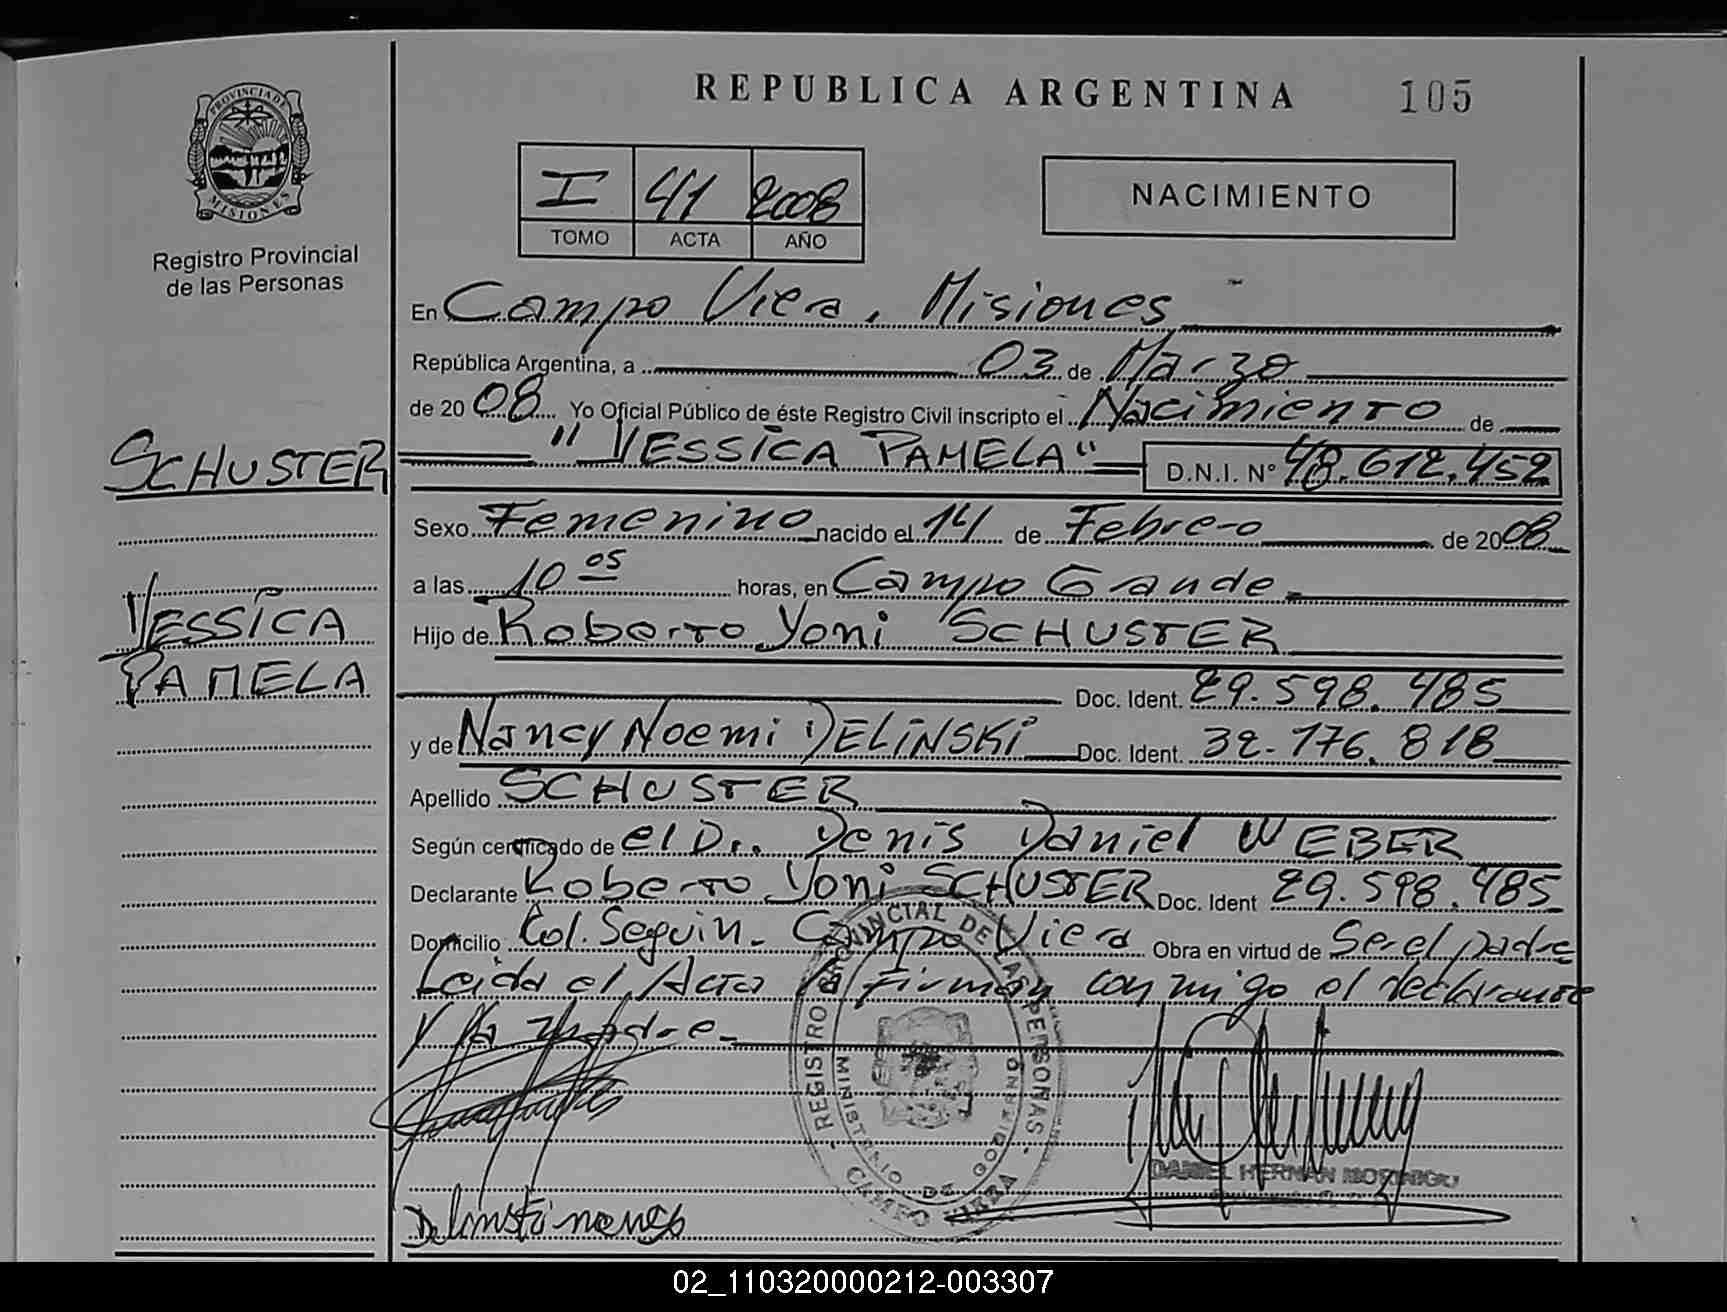 REPUBLICA ARGENTINA
105
PROVINCIA DE
MISIONES
Registro Provincial
de las Personas
I 41 2008
TOMO ACTA AÑO
NACIMIENTO
En Campo Viera, Misiones
República Argentina, a 03 de Marzo
de 2008 Yo Oficial Público de éste Registro Civil inscripto el Nacimiento de
"YESSICA PAMELA" D.N.I. N° 48.612.452
SCHUSTER
YESSICA
PAMELA
Sexo Femenino nacido el 14 de Febrero de 2008
a las 10 05 horas, en Campo Grande
Hijo de Roberto Yoni SCHUSTER
Doc. Ident. 29.598.485
y de Nancy Noemi DELINSKI Doc. Ident. 32-176.818
Apellido SCHUSTER
Según certificado de el Dr. Denis Daniel WEBER
Declarante Roberto Yoni SCHUSTER Doc. Ident 29.598.485
Domicilio Col. Seguin. Campo Viera Obra en virtud de Ser el padre
Leida el Acta la firman conmigo el declarante
y la madre-
REGISTRO PROVINCIAL DE LAS PERSONAS
MINISTERIO DE GOBIERNO
CAMPO VIERA
DANIEL HERNAN
02_110320000212-003307